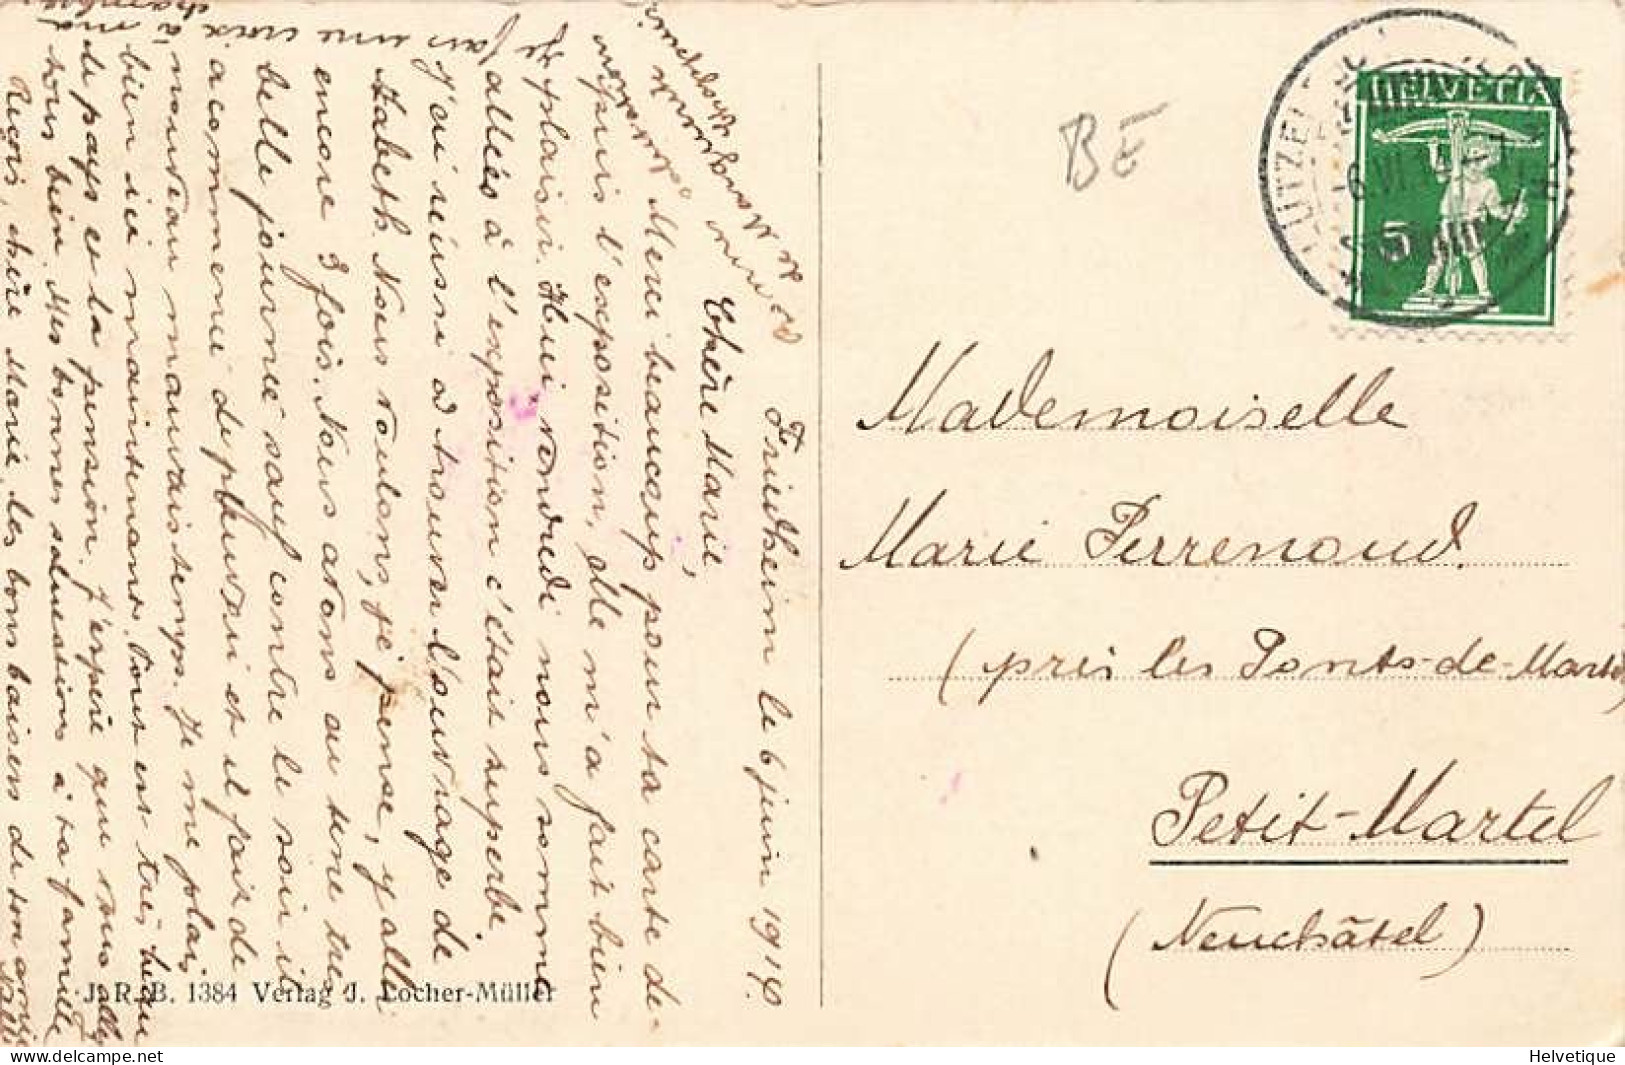 Friedheim le 6 juin 1914.
Chère Marie,
Merci beaucoup pour ta carte de-
puis l'exposition, elle m'a fait bien
plaisir. Hui vendredi nous somme
allées à l'exposition c'était superbe.
J'ai réussi à trouver l'ouvrage de
Nous voulons, je pense, y aller
encore 3 fois. Nous avons eu une très
belle journée sauf contre le soir il
a commencé de pleuvoir et il fait de
nouveau mauvais temps. Je me plais
bien ici maintenant, tout est très beau
le pays et la pension. J'espère que vous allez
tous bien. Mes bonnes salutations à ta famille
Reçois, chère Marie, les bons baisers de ton amie
BE
HELVETIA
5
Mademoiselle
Marie Perrenoud.
(près les Ponts-de-Martel)
Petit-Martel
(Neuchâtel)
J. R. B. 1384 Verlag J. Locher-Müller
Helvetique
www.delcampe.net